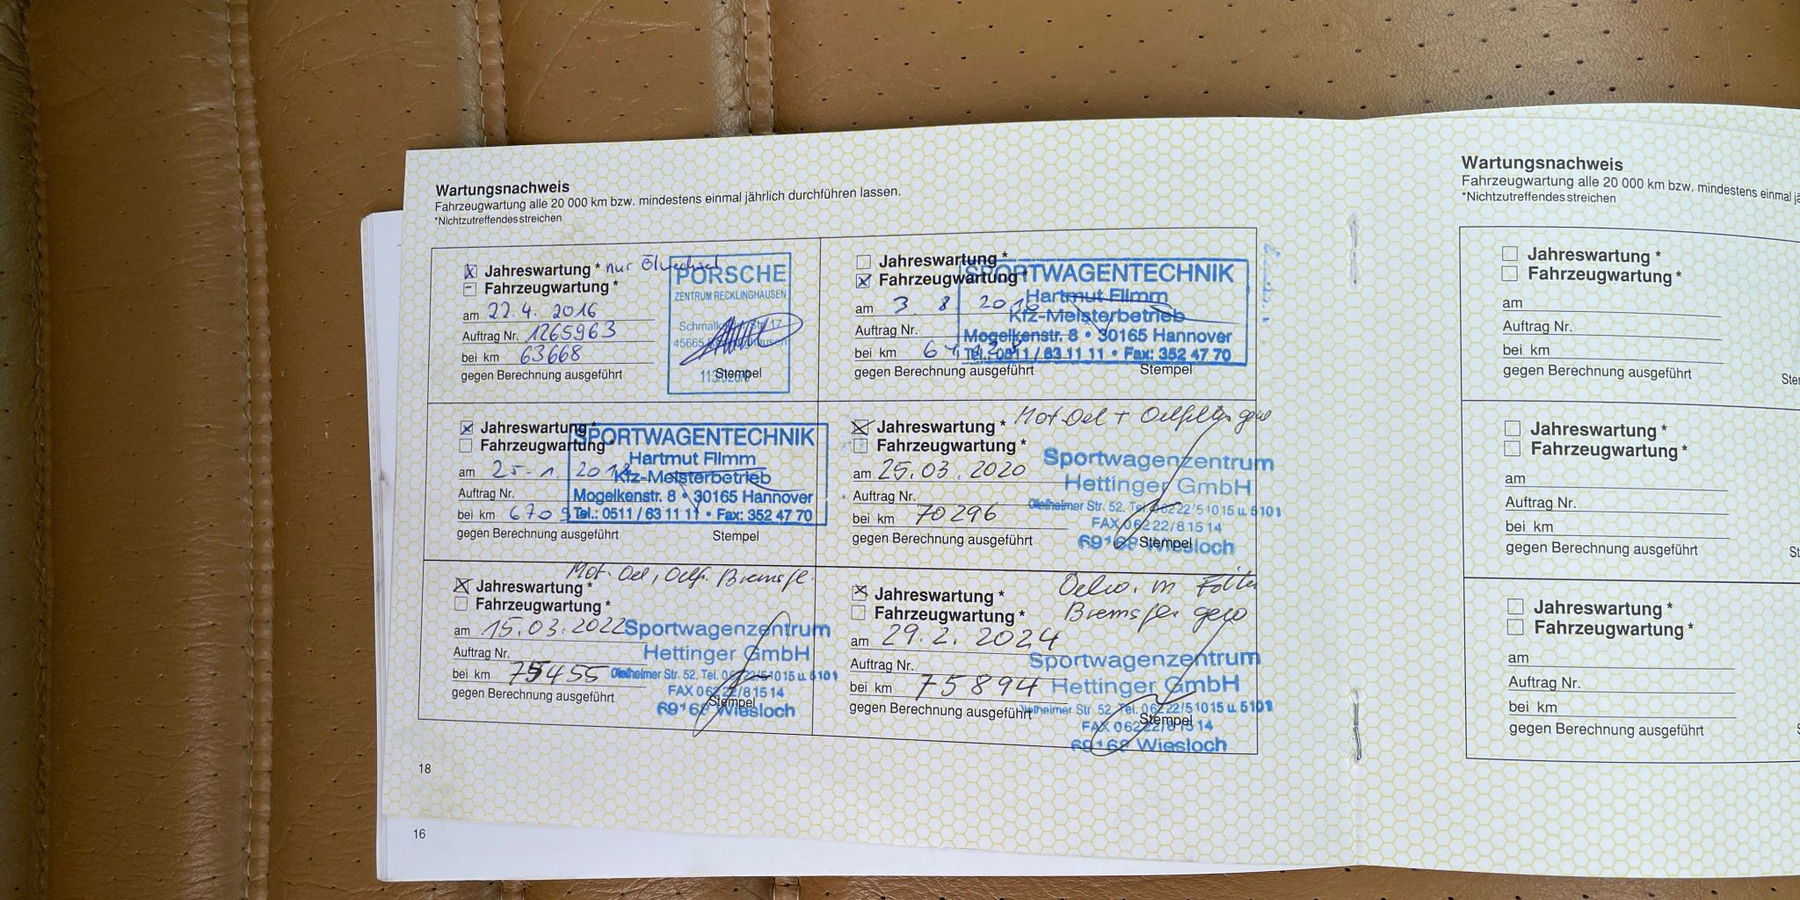 Wartungsnachweis
Fahrzeugwartung alle 20 000 km bzw. mindestens einmal jährlich durchführen lassen.
*Nichtzutreffendes streichen
Jahreswartung * nur Ölwechsel
Fahrzeugwartung *
am 22.4. 2016
Auftrag Nr. 1265963
bei km 63668
gegen Berechnung ausgeführt
PORSCHE
ZENTRUM RECKLINGHAUSEN
45665
Stempel
Jahreswartung *
Fahrzeugwartung *
am 3 8 2016
Auftrag Nr.
bei km
gegen Berechnung ausgeführt
SPORTWAGENTECHNIK
Hartmut Flimm
Kfz-Meisterbetrieb
Mogelkenstr. 8 • 30165 Hannover
Tel.: 0511 / 63 11 11 • Fax: 352 47 70
Stempel
Jahreswartung *
Fahrzeugwartung *
am 25-1. 2018
Auftrag Nr.
bei km 6709
gegen Berechnung ausgeführt
SPORTWAGENTECHNIK
Hartmut Flimm
Kfz-Meisterbetrieb
Mogelkenstr. 8 • 30165 Hannover
Tel.: 0511 / 63 11 11 • Fax: 352 47 70
Stempel
Mot. Oel + Oelfilter gew
Jahreswartung *
Fahrzeugwartung *
am 25.03.2020
Auftrag Nr.
bei km 70296
gegen Berechnung ausgeführt
Sportwagenzentrum
Hettinger GmbH
Dielheimer Str. 52. Tel. 06222/51015 u. 5101
FAX 06222/81514
69168 Wiesloch
Stempel
Mot. Oel, Oelf. Bremsfl.
Jahreswartung *
Fahrzeugwartung *
am 15.03.2022
Auftrag Nr.
bei km 75455
gegen Berechnung ausgeführt
Sportwagenzentrum
Hettinger GmbH
Dielheimer Str. 52. Tel. 06222/51015 u. 5101
FAX 06222/81514
69168 Wiesloch
Stempel
Oelw. m Filter
Bremsfl. gew
Jahreswartung *
Fahrzeugwartung *
am 29.2.2024
Auftrag Nr.
bei km 75894
gegen Berechnung ausgeführt
Sportwagenzentrum
Hettinger GmbH
Dielheimer Str. 52. Tel. 06222/51015 u. 5101
FAX 06222/81514
69168 Wiesloch
Stempel
18
16
Wartungsnachweis
Fahrzeugwartung alle 20 000 km bzw. mindestens einmal
*Nichtzutreffendes streichen
Jahreswartung *
Fahrzeugwartung *
am
Auftrag Nr.
bei km
gegen Berechnung ausgeführt
Jahreswartung *
Fahrzeugwartung *
am
Auftrag Nr.
bei km
gegen Berechnung ausgeführt
Jahreswartung *
Fahrzeugwartung *
am
Auftrag Nr.
bei km
gegen Berechnung ausgeführt